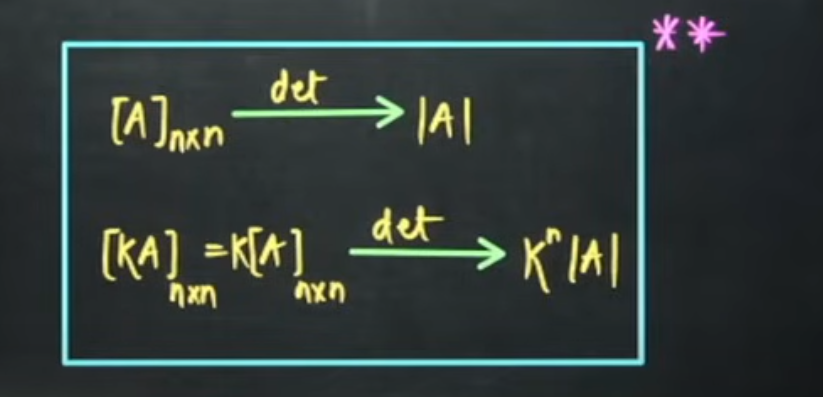 **
[A]n×n det→ |A|
[KA]n×n = K[A]n×n det→ Kⁿ|A|